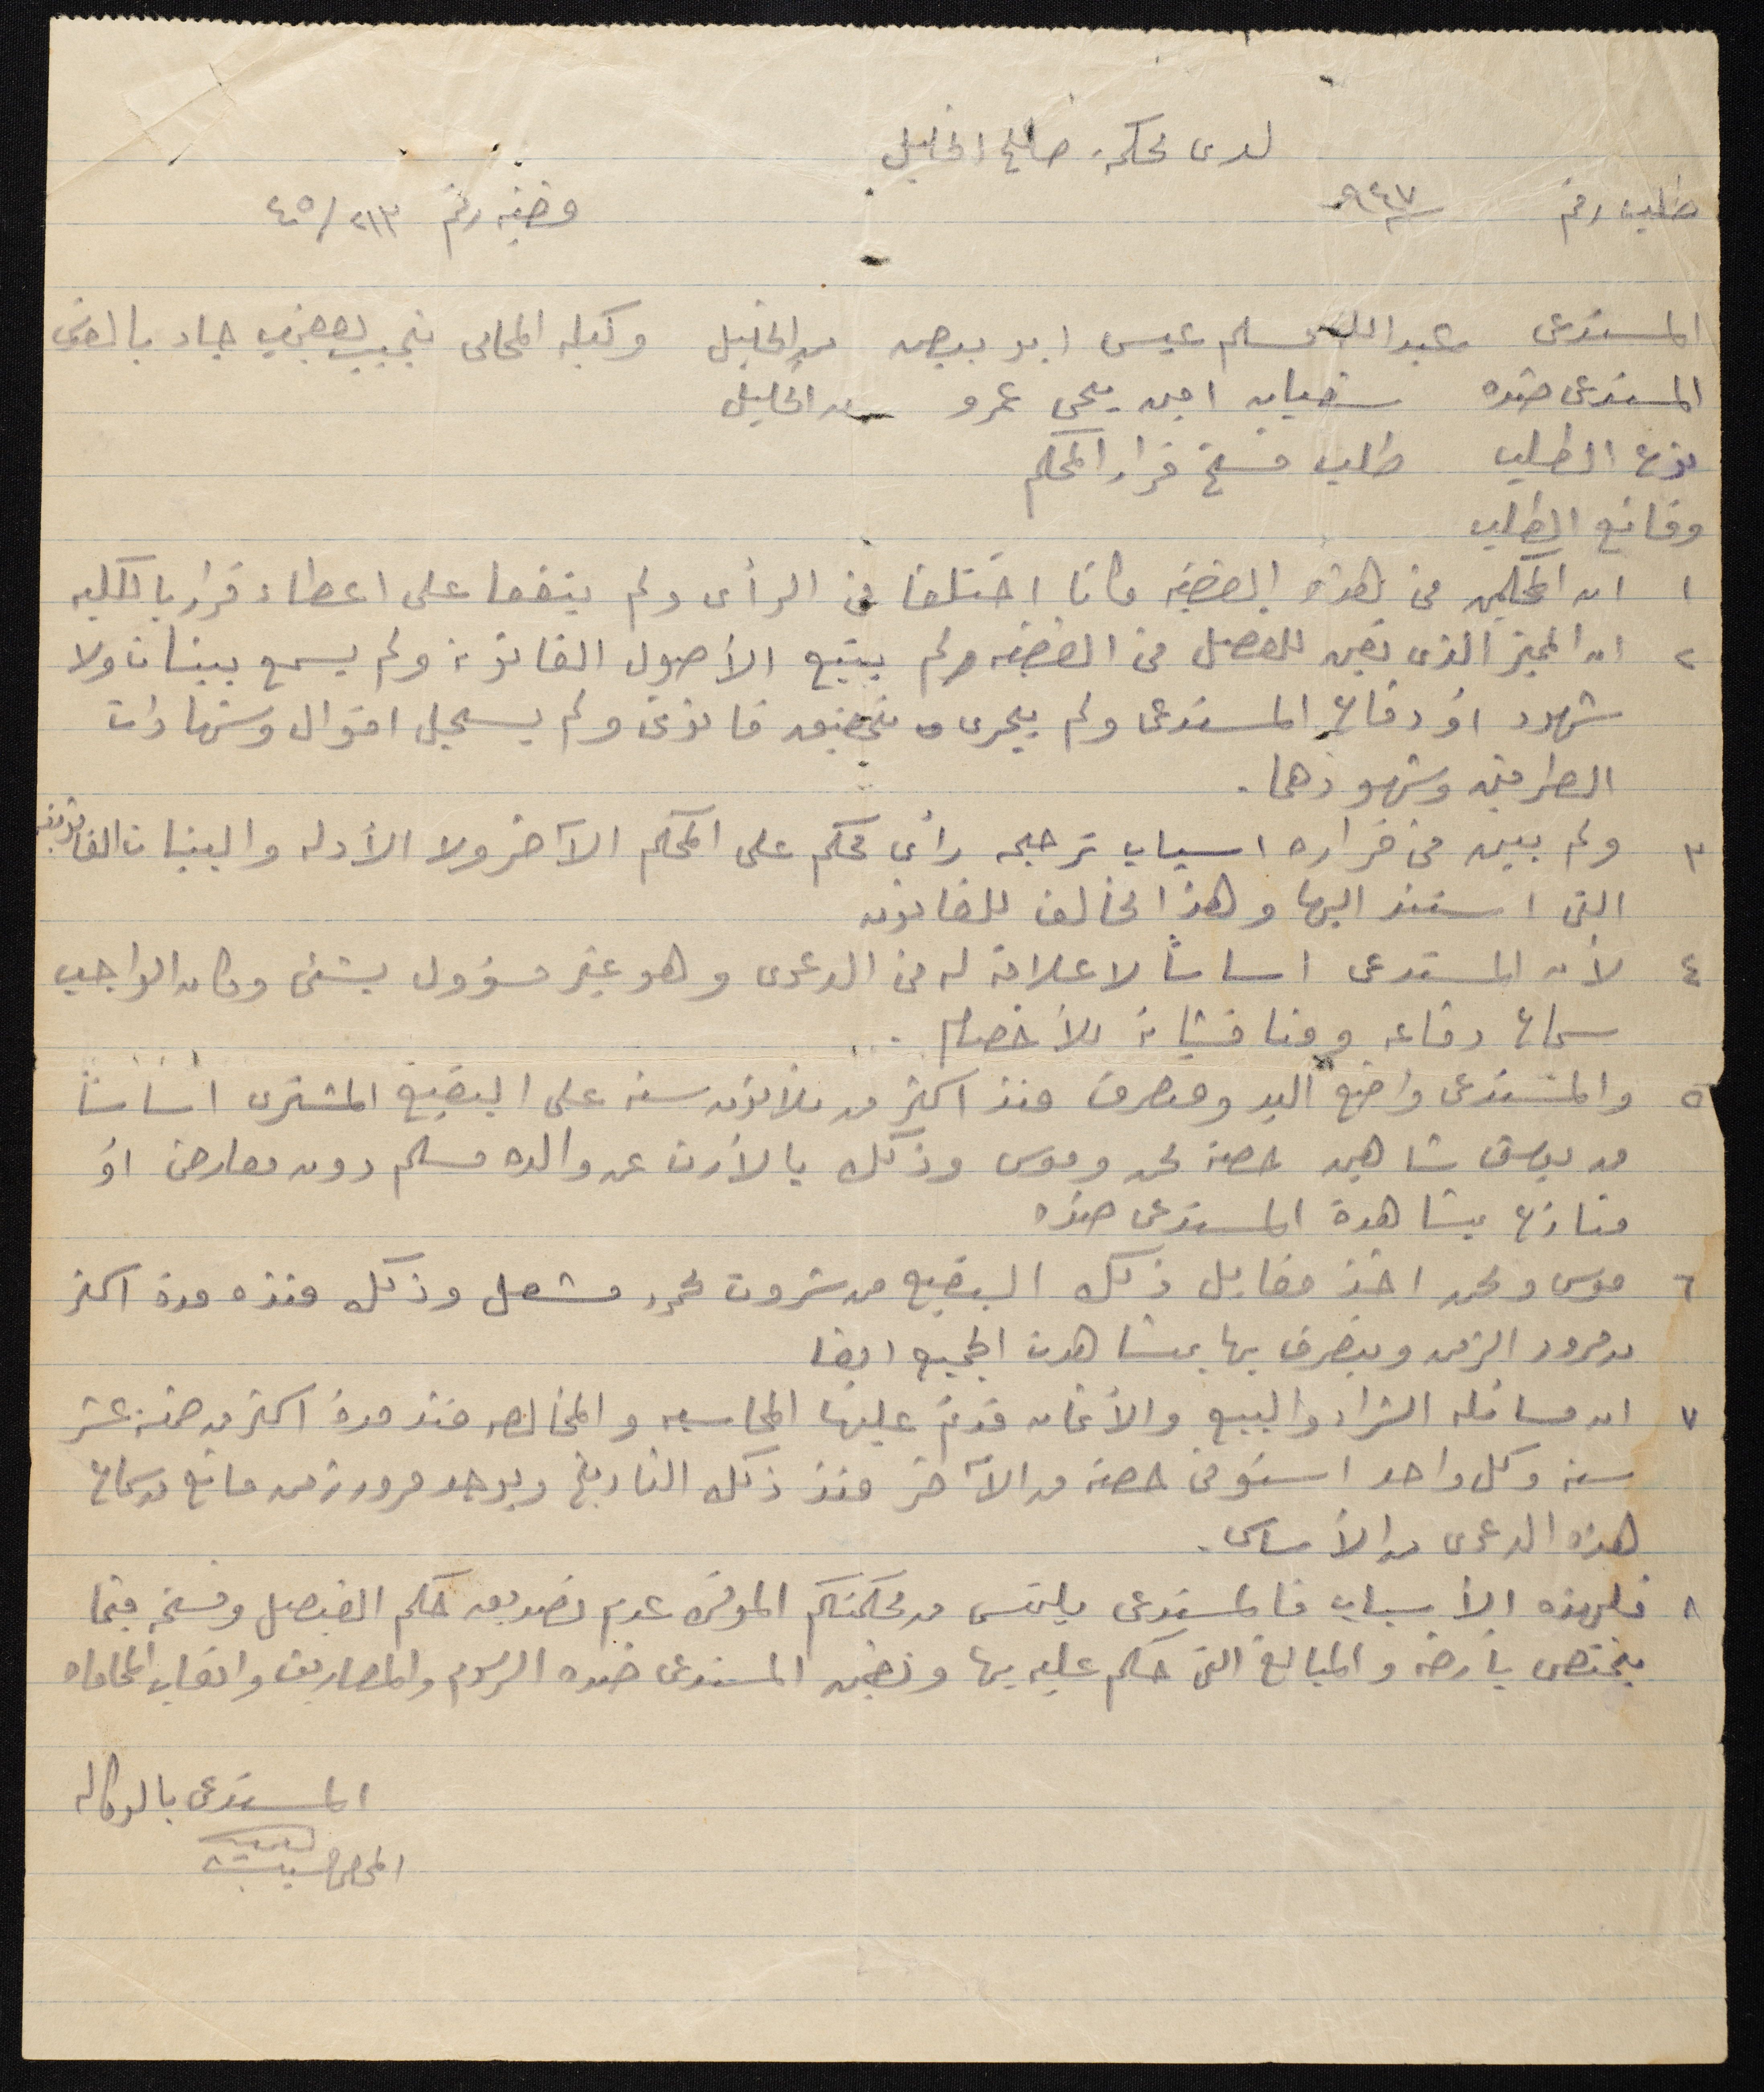 لدى محكمة صلح الخليل
طلب رقم ٩٤٧ قضيه رقم ٢١٣/٤٥
المستدعى عبد الله مسلم عيسى ابو بيض من الخليل وكيله المحامى نجيب جاد بالخليل
المستدعى ضده سفيان امين يحى عمرو من الخليل
نوع الطلب طلب فسخ قرار المحكم
وقائع الطلب
١ ان المحكمين فى هذه القضيه كانا اختلفا فى الرأى ولم يتفقا على اعطاء قرار بالكليه
٢ ان المميز الذى تعين للفصل فى القضيه ولم يتبع الأصول القانونية ولم يسمع بينات ولا
شهود او دفاع المستدعى ولم يجرى تحقيق قانونى ولم يسجل اقوال وشهادات
الطرفين وشهودهما.
٣ ولم يبين فى قراره اسباب ترجيحه رأى محكم على المحكم الآخر ولا الأدله والبينات القانونيه
التى استند اليها وهذا مخالف للقانون
٤ لأن المستدعى اساساً لا علاقة له فى الدعوى وهو غير مسؤول بشئ وكان الواجب
سماع دفاعه ومناقشاته للأخصام.
٥ والمستدعى واضع اليد ومتصرف منذ اكثر من ثلاثون سنه على البقيع المشترى اساساً
من يوسف شاهين حصة محمد وموسى وذلك بالأرث عن والده مسلم دون معارض او
منازع بمشاهدة المستدعى ضده
٦ موسى ومحمد اخذ مقابل ذلك البقيع من شروت محمود مشعل وذلك منذه مدة اكثر
من مرور الزمن ويتصرف بها بمشاهدت الجميع ايضا
٧ ان مسائله الشراء والبيع والأثمان قد تم عليها المحاسبه والمخالصه منذ مدة اكثر من خمسة عشر
سنه وكل واحد استوفى حصته من الآخر منذ ذلك التاريخ ويوجد مرور زمن مانع من سماع
هذه الدعوى من الأساس.
٨ فلهذه الأسباب فالمستدعى يلتمس من محكمتكم الموقره عدم تصديق حكم الفيصل وفسخه فيما
يختص بأرضه والمبالغ التى حكم عليه بها وتضمين المستدعى ضده الرسوم والمصاريف واتعاب المحاماه
المستدعى بالوكاله
المحامى